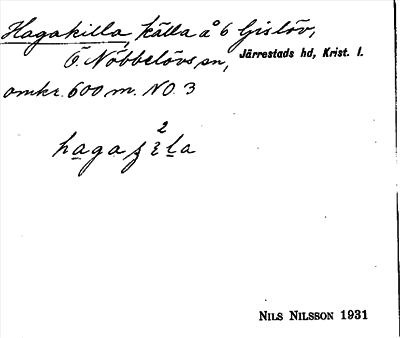 Hagakilla, källa å 6 Gislöv,
Ö. Nöbbelövs sn, Järrestads hd, Krist. l.
omkr. 600 m. NO. 3
2
NILS NILSSON 1931